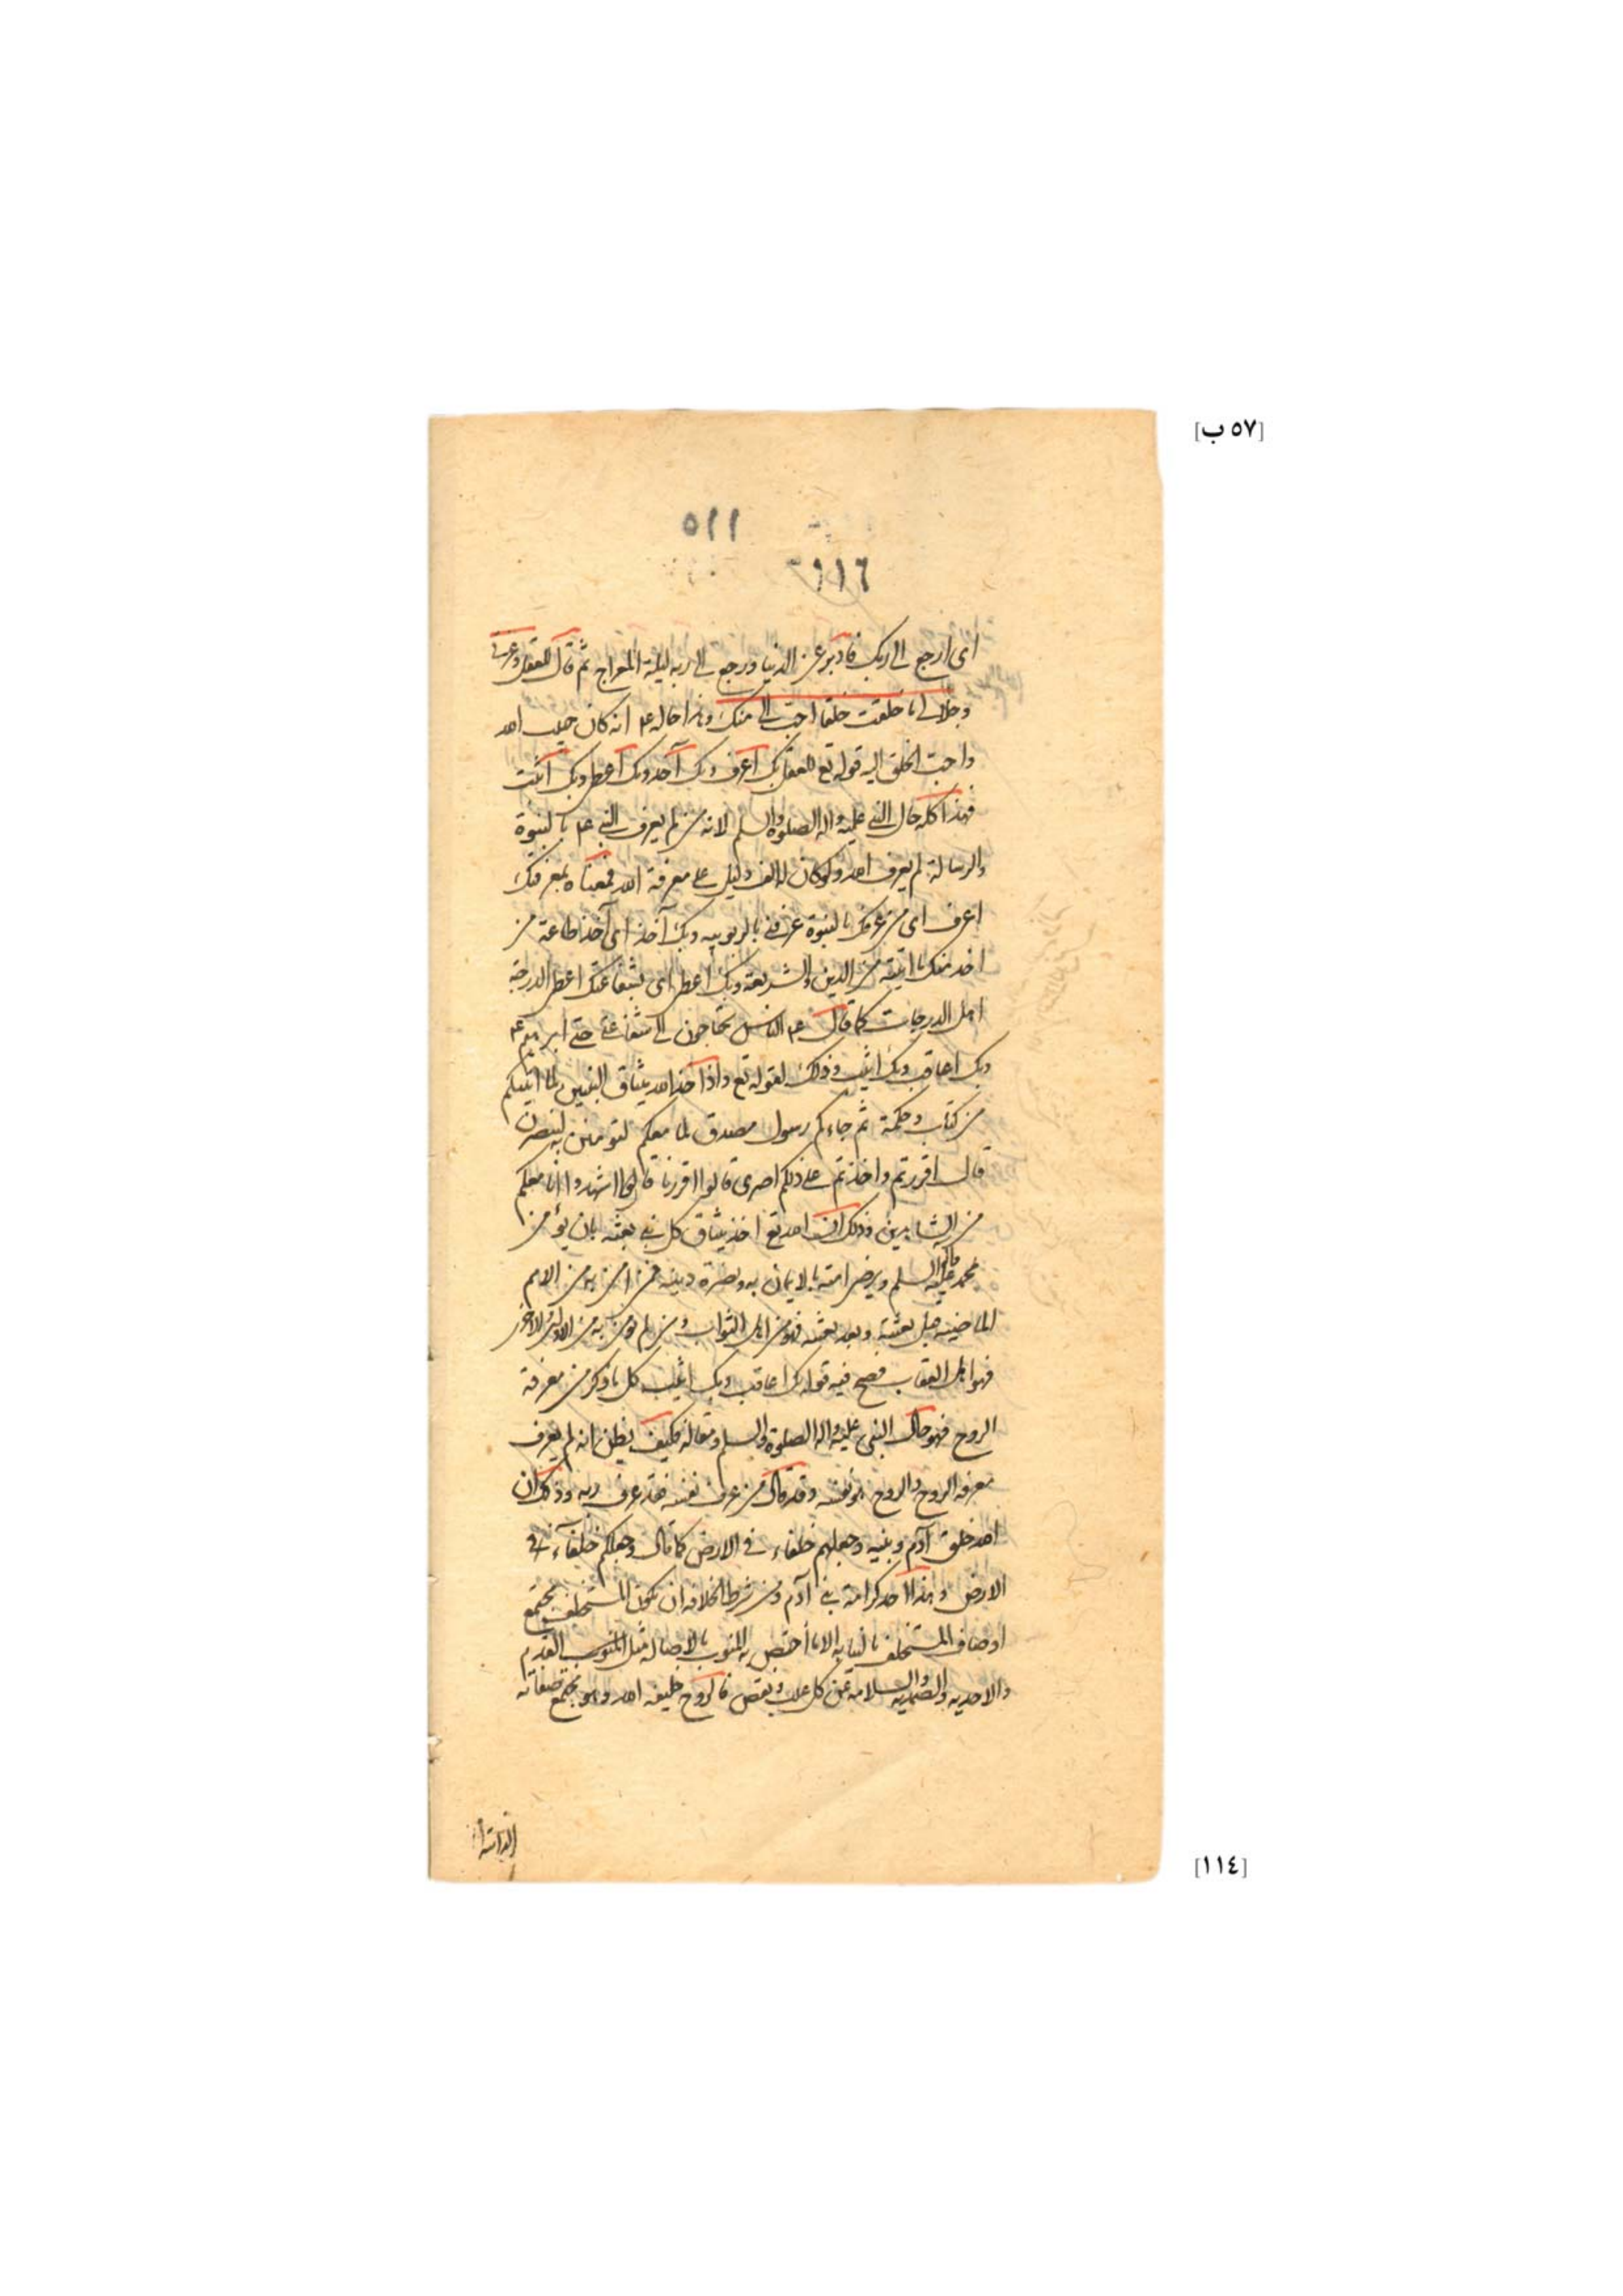 [٥٧ ب]
٥١١
١١٦
اى ارجع الى ربك فادبر عن الدنيا ورجع الى ربه ليلة المعراج ثم قال للعقل وعزتى
وجلالى ما خلقت خلقا احب الى منك وهذا حاله عم انه كان حبيب الله
واحب الخلق اليه قوله تع للعقل بك اعرف وبك آخذ وبك اعطى وبك اثبت
فهذا كله حال النبى عليه واله الصلوة والسلم لانه من لم يعرف النبى عم بالنبوة
والرسالة لم يعرف الله ولو كان له الف دليل على معرفة الله فمعناه بمعرفتك
اعرف اى من عرفك بالنبوة عرفنى بالربوبيه وبك آخذ اى آخذ طاعة من
اخذ منك ما اتيته من الدين والشريعة وبك اعطى اى بشفاعتك اعطى الدرجة
اهل الدرجات كما قال عم الناس يحتاجون الى شفاعتى حتى ابرهيم عم
وبك اعاقب وبك اثيب وذلك لقوله تع واذ اخذ الله ميثاق النبيين لما اتيتكم
من كتاب وحكمة ثم جاءكم رسول مصدق لما معكم لتؤمنن به ولتنصرن
قال اقررتم واخذتم على ذلكم اصرى قالوا اقررنا قال فاشهدوا انا معكم
من الشاهدين وذلك ان الله تع اخذ ميثاق كل نبى بعثه بان يؤمن
محمد عليه السلم ويوصى امته بالايمان به ونصرة دينه فمن امن به من الامم
الماضيه قبل بعثته وبعد بعثته فهو من اهل الثواب ومن لم يؤمن به من الاولين والاخرين
فهو اهل العقاب فصح فيه قوله بك اعاقب وبك اثيب كل ما ذكر من معرفة
الروح فهو حال النبى عليه واله الصلوة والسلم ومقاله فكيف يظن انه لم يعرف
معرفه الروح والروح هو نفسه وقد قال من عرف نفسه فقد عرف ربه وذلك ان
الله خلق آدم وبنيه وجعلهم خلفاء فى الارض كما قال وجعلكم خلفآء فى
الارض وهذا احد كرامة بنى آدم ومن شرط الخلافه ان يكون المستخلف مجتمع
اوصاف المستخلف بالنيابه الا ما اختص به المنوب بالاصاله مثل المنوب القدم
والاحديه والصمديه والسلامه عن كل عيب ونقص فالروح خليفه الله وهو مجتمع صفاته
[١١٤]